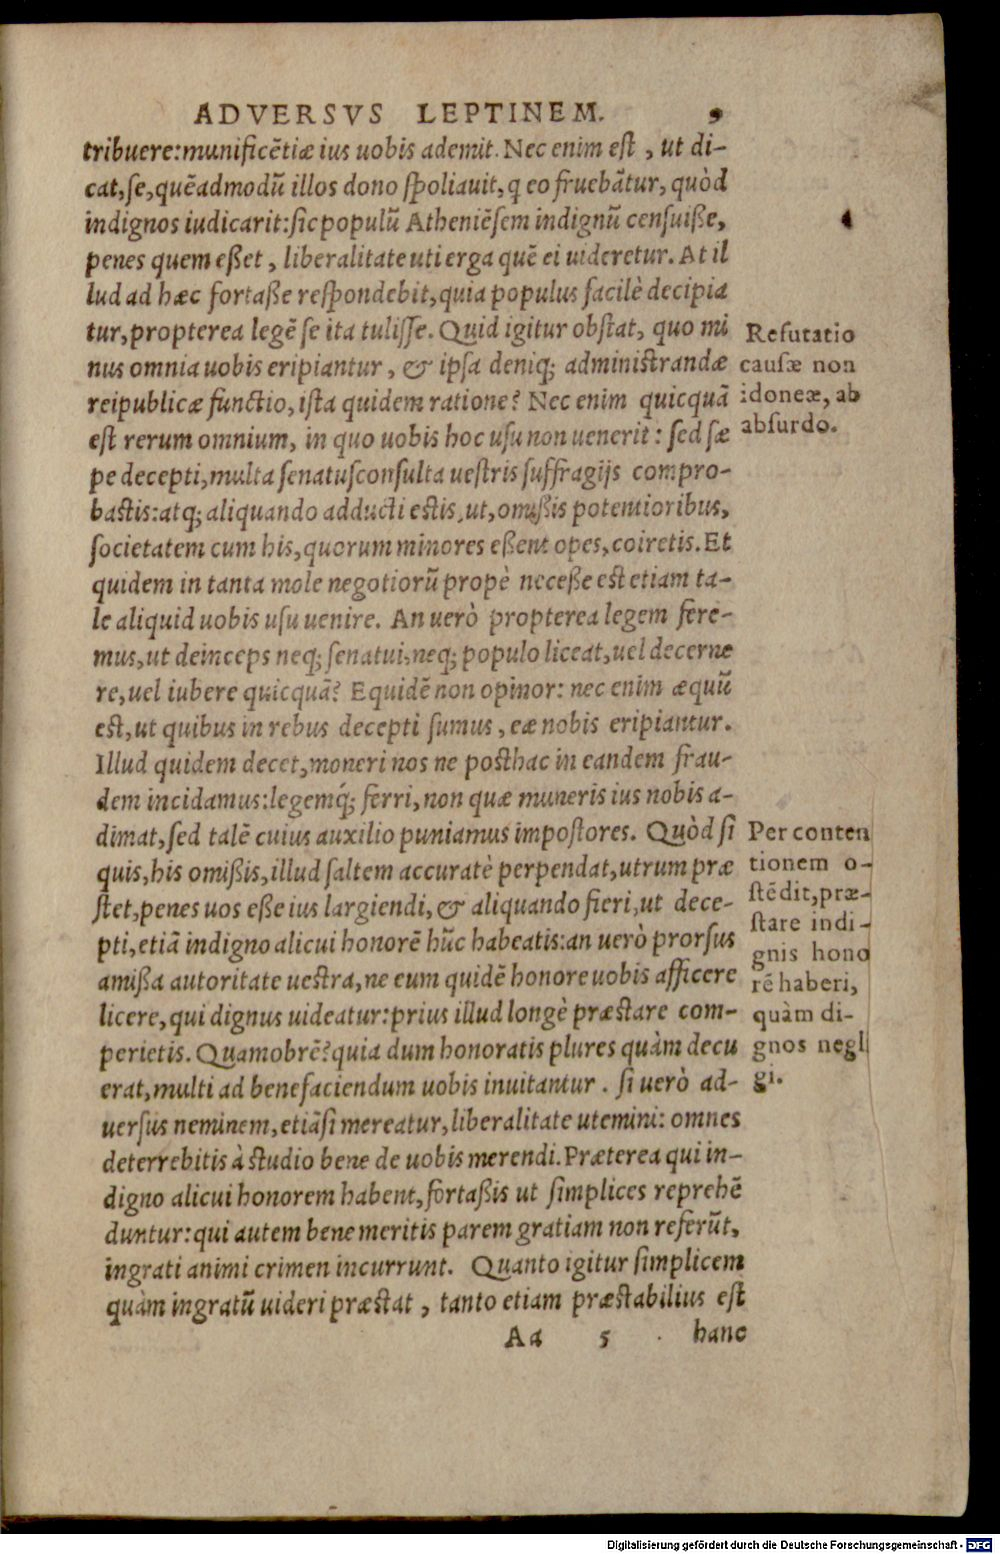 ADVERSVS LEPTINEM. 9
tribuere: munificẽtiæ ius uobis ademit. Nec enim est, ut di-
cat, se, quẽadmodũ illos dono spoliauit, q eo fruebãtur, quòd
indignos iudicarit: sic populũ Atheniẽsem indignũ censuiße,
penes quem eßet, liberalitate uti erga quẽ ei uideretur. At il
lud ad hæc fortaße respondebit, quia populus facilè decipia
tur, propterea legẽ se ita tulisse. Quid igitur obstat, quo mi
nus omnia uobis eripiantur, & ipsa deniq; administrandæ
reipublicæ functio, ista quidem ratione? Nec enim quicquã
est rerum omnium, in quo uobis hoc usu non uenerit: sed sæ
pe decepti, multa senatusconsulta uestris suffragijs compro-
bastis: atq; aliquando adducti estis, ut, omißis potentioribus,
societatem cum his, quorum minores eßent opes, coiretis. Et
quidem in tanta mole negotiorũ propè neceße est etiam ta-
le aliquid uobis usu uenire. An uerò propterea legem fere-
mus, ut deinceps neq; senatui, neq; populo liceat, uel decerne
re, uel iubere quicquã? Equidẽ non opinor: nec enim æquũ
est, ut quibus in rebus decepti sumus, eæ nobis eripiantur.
Illud quidem decet, moneri nos ne posthac in eandem frau-
dem incidamus: legemq́; ferri, non quæ muneris ius nobis a-
dimat, sed talẽ cuius auxilio puniamus impostores. Quòd si
quis, his omißis, illud saltem accuratè perpendat, utrum præ
stet, penes uos eße ius largiendi, & aliquando fieri, ut dece-
pti, etiã indigno alicui honorẽ hũc habeatis: an uerò prorsus
amißa autoritate uestra, ne eum quidẽ honore uobis afficere
licere, qui dignus uideatur: prius illud longè præstare com-
perietis. Quamobrẽ? quia dum honoratis plures quàm decu
erat, multi ad benefaciendum uobis inuitantur. si uerò ad-
uersus neminem, etiãsi mereatur, liberalitate utemini: omnes
deterrebitis à studio bene de uobis merendi. Præterea qui in-
digno alicui honorem habent, fortaßis ut simplices reprehẽ
duntur: qui autem bene meritis parem gratiam non referũt,
ingrati animi crimen incurrunt. Quanto igitur simplicem
quàm ingratũ uideri præstat, tanto etiam præstabilius est
Aa 5 hanc
Refutatio
causæ non
idoneæ, ab
absurdo.
Per conten
tionem o-
stẽdit, præ-
stare indi-
gnis hono
rẽ haberi,
quàm di-
gnos negli
gi.
Digitalisierung gefördert durch die Deutsche Forschungsgemeinschaft - DFG